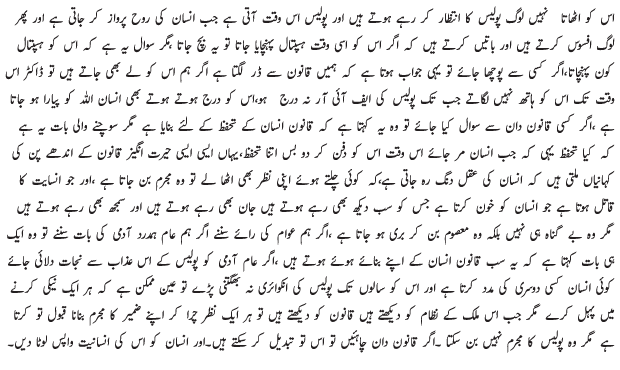 اس کو اٹھاتا نہیں لوگ پولیس کا انتظار کر رہے ہوتے ہیں اور پولیس اس وقت آتی ہے جب انسان کی روح پرواز کر جاتی ہے اور پھر
لوگ افسوس کرتے ہیں اور باتیں کرتے ہیں کہ اگر اس کو اسی وقت ہسپتال پہنچایا جاتا تو یہ بچ جاتا ،مگر سوال یہ ہے کہ اس کو ہسپتال
کون پہنچاتا،اگر کسی سے پوچھا جائے تو یہی جواب ہوتا ہے کہ ہمیں قانون سے ڈر لگتا ہے اگر ہم اس کو لے بھی جاتے ہیں تو ڈاکٹر اس
وقت تک اس کو ہاتھ نہیں لگاتے جب تک پولیس کی ایف آئی آر نہ درج ہو،اس کو درج ہوتے ہوتے بھی انسان اللہ کو پیارا ہو جاتا
ہے ،اگر کسی قانون دان سے سوال کیا جائے تو وہ یہ کہتا ہے کہ قانون انسان کے تحفظ کے لئے بنایا ہے مگر سوچنے والی بات یہ ہے
کہ کیا تحفظ یہی کہ جب انسان مر جائے اس وقت اس کو دفن کر دو بس اتنا تحفظ،یہاں ایسی ایسی حیرت انگیز قانون کے اندھے پن کی
کہانیاں ملتی ہیں کہ انسان کی عقل دنگ رہ جاتی ہے،کہ کوئی چلتے ہوئے اپنی نظر بھی اٹھا لے تو وہ مجرم بن جاتا ہے ،اور جو انسایت کا
قاتل ہوتا ہے جو انسان کو خون کرتا ہے جس کو سب دیکھ بھی رہے ہوتے ہیں جان بھی رہے ہوتے ہیں اور سمجھ بھی رہے ہوتے ہیں
مگر وہ بے گناہ ہی نہیں بلکہ وہ معصوم بن کر بری ہو جاتا ہے ،اگر ہم عوام کی رائے سنتے اگر ہم عام ہمدرد آدمی کی بات سنتے تو وہ ایک
ہی بات کہتا ہے کہ یہ سب قانون انسان کے اپنے بنائے ہوئے ہوتے ہیں ،اگر عام آدمی کو پولیس کے اس عذاب سے نجات دلائی جائے
کوئی انسان کسی دوسری کی مدد کرتا ہے اور اس کو سالوں تک پولیس کی انکوائری نہ بھگتنی پڑے تو عین ممکن ہے کہ ہر ایک نیکی کرنے
میں پہل کرے مگر جب اس ملک کے نظام کو دیکھتے ہیں قانون کو دیکھتے ہیں تو ہر ایک نظر چرا کر اپنے ضمیر کا مجرم بنانا قبول تو کرتا
ہے مگر وہ پولیس کا مجرم نہیں بن سکتا ۔اگر قانون دان چاہئیں تو اس تو تبدیل کر سکتے ہیں۔اور انسان کو اس کی انسانیت واپس لوٹا دیں۔